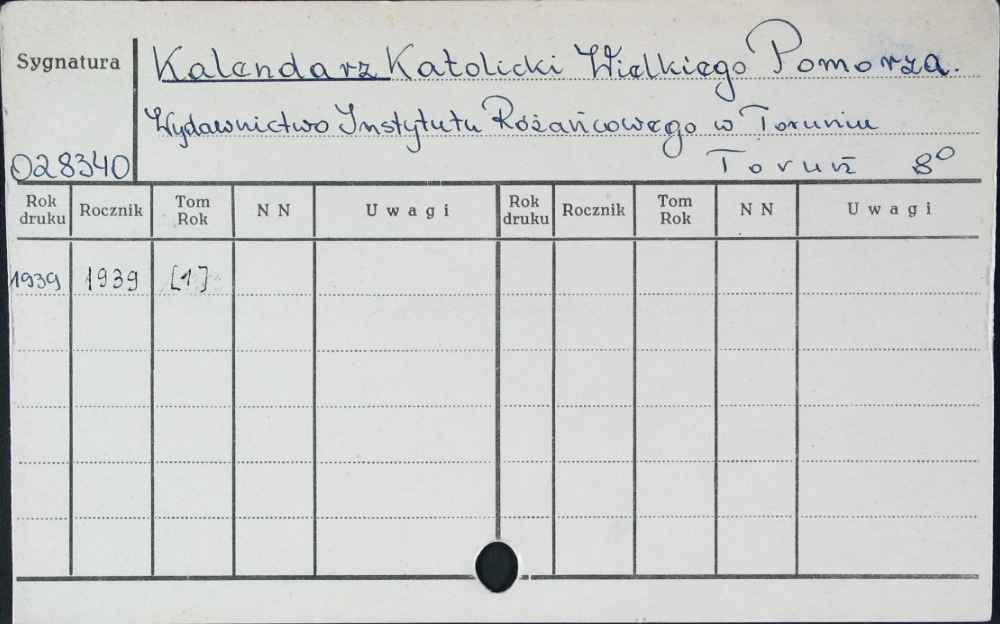 Sygnatura
Kalendarz Katolicki Wielkiego Pomorza.
Wydawnictwo Instytutu Różańcowego w Toruniu
028340 Toruń 8°
Rok druku Rocznik Tom Rok N N Uwagi Rok druku Rocznik Tom Rok N N Uwagi
1939 1939 [1]